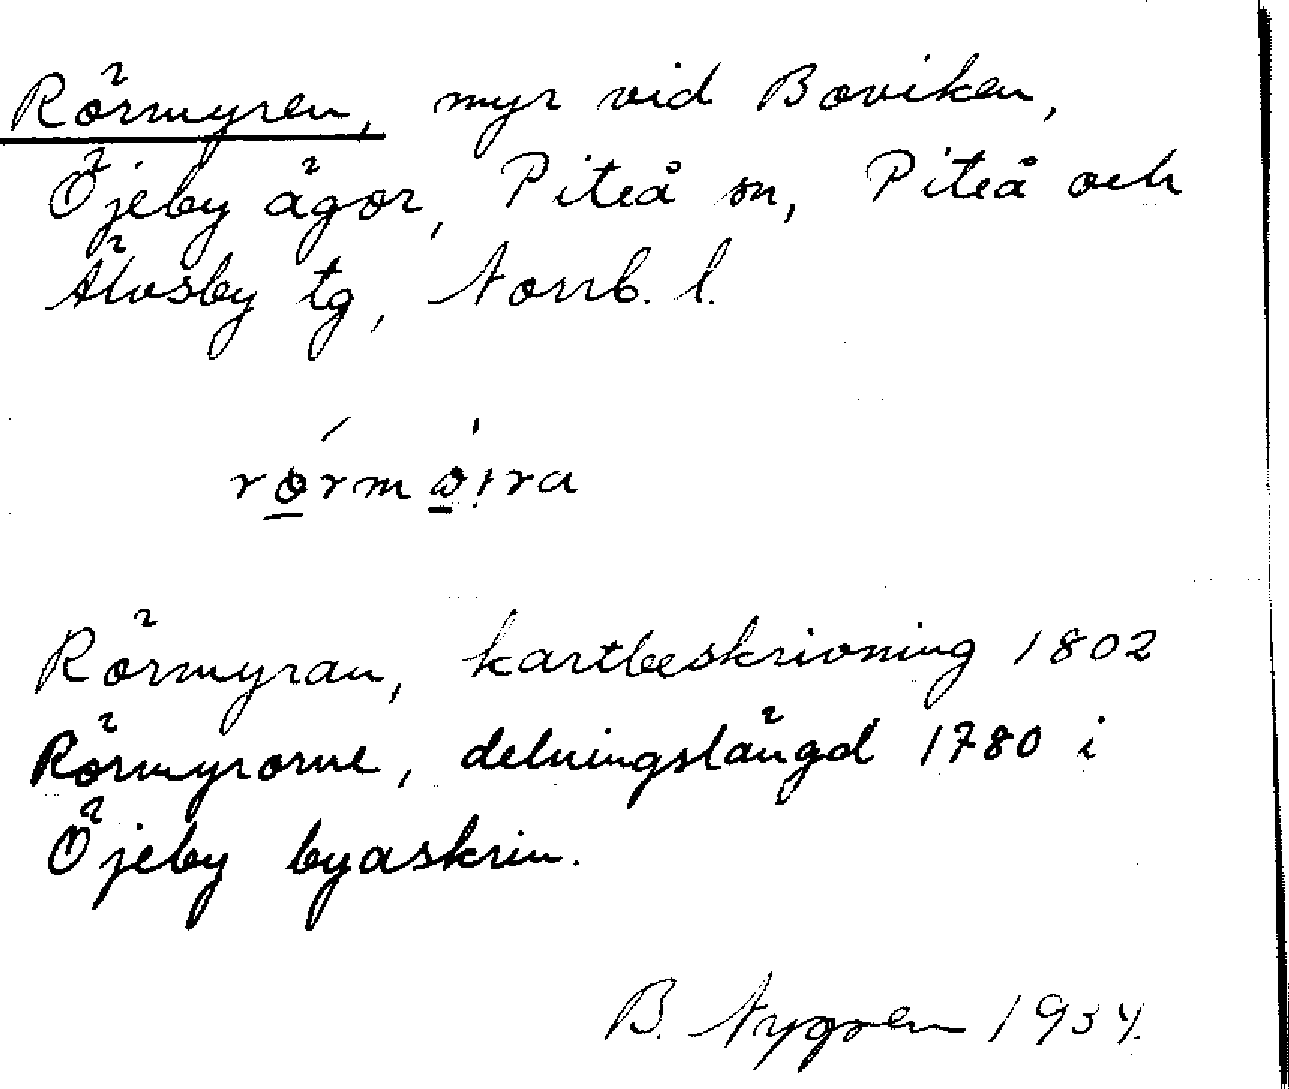 Rörmyren, myr vid Boviken,
Öjeby ägor, Piteå sn, Piteå och
Älvsby tg, Norrb. l.
Rörmyran, kartbeskrivning 1802
Rörmyrorne, delningslängd 1780 i
Öjeby byaskrin.
B. Nygren 1934.